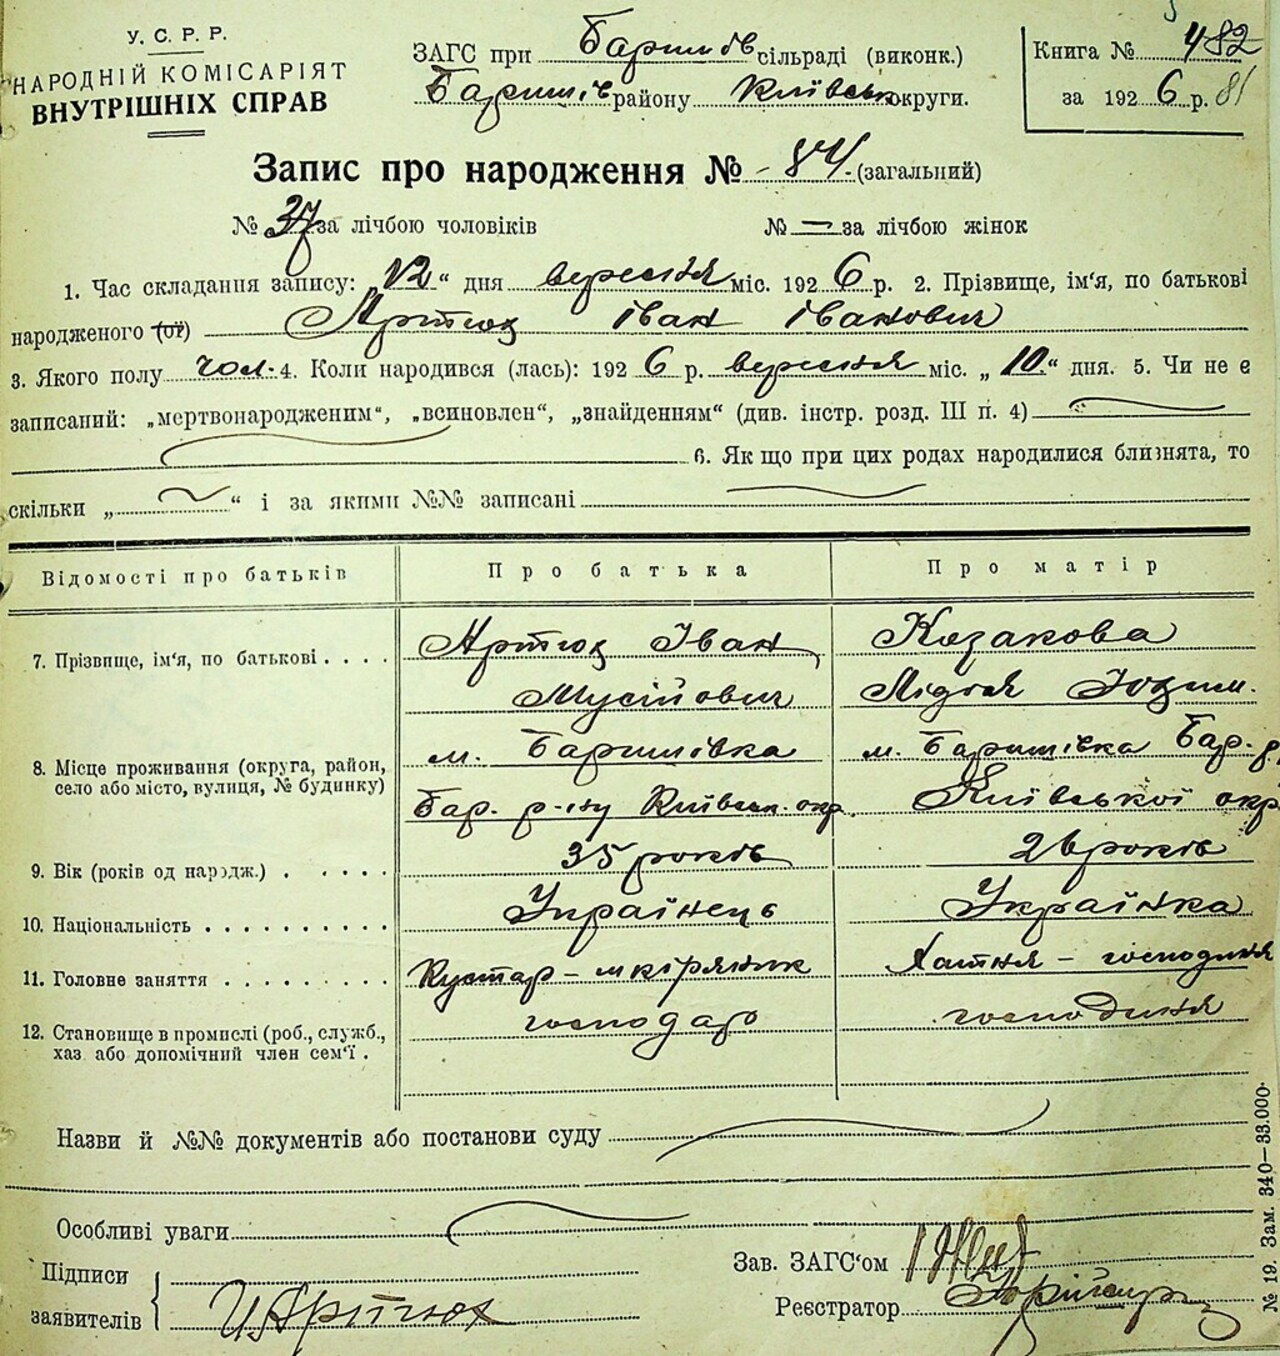 У. С. Р. Р.
НАРОДНІЙ КОМІСАРІЯТ
ВНУТРІШНІХ СПРАВ
ЗАГС при Баришів сільраді (виконк.)
Баришів району Київськ округи.
Книга № 482
за 1926 р. 81
Запис про народження № - 84 - (загальний)
№ 37 за лічбою чоловіків № — за лічбою жінок
1. Час складання запису: „12“ дня вересня міс. 1926 р. 2. Прізвище, ім‘я, по батькові
народженого (ої) Артюх Іван Іванович
3. Якого полу чол. 4. Коли народився (лась): 1926 р. вересня міс. „10“ дня. 5. Чи не є
записаний: „мертвонародженим“, „всиновлен“, „знайденням“ (див. інстр. розд. III п. 4)
6. Як що при цих родах народилися близнята, то
скільки „ “ і за якими №№ записані
Відомості про батьків Про батька Про матір
7. Прізвище, ім‘я, по батькові . . . . Артюх Іван Козакова
Мусійович Лідія
8. Місце проживання (округа, район, м. Баришівка м. Баришівка Бар. р.
село або місто, вулиця, № будинку) Бар. р-ну Київськ. окр. Київської окр.
9. Вік (років од народж.) . . . . . 35 років 26 років
10. Національність . . . . . . . . . . Українець Українка
11. Головне заняття . . . . . . . . . Кустар – шкіряник Хатня – господиня
12. Становище в промислі (роб., служб., господар господиня
хаз. або допомічний член сем‘ї .
Назви й №№ документів або постанови суду
Особливі уваги
Підписи
заявителів И Артюх
Зав. ЗАГС‘ом
Реєстратор
№ 19. Зам. 340—33.000.